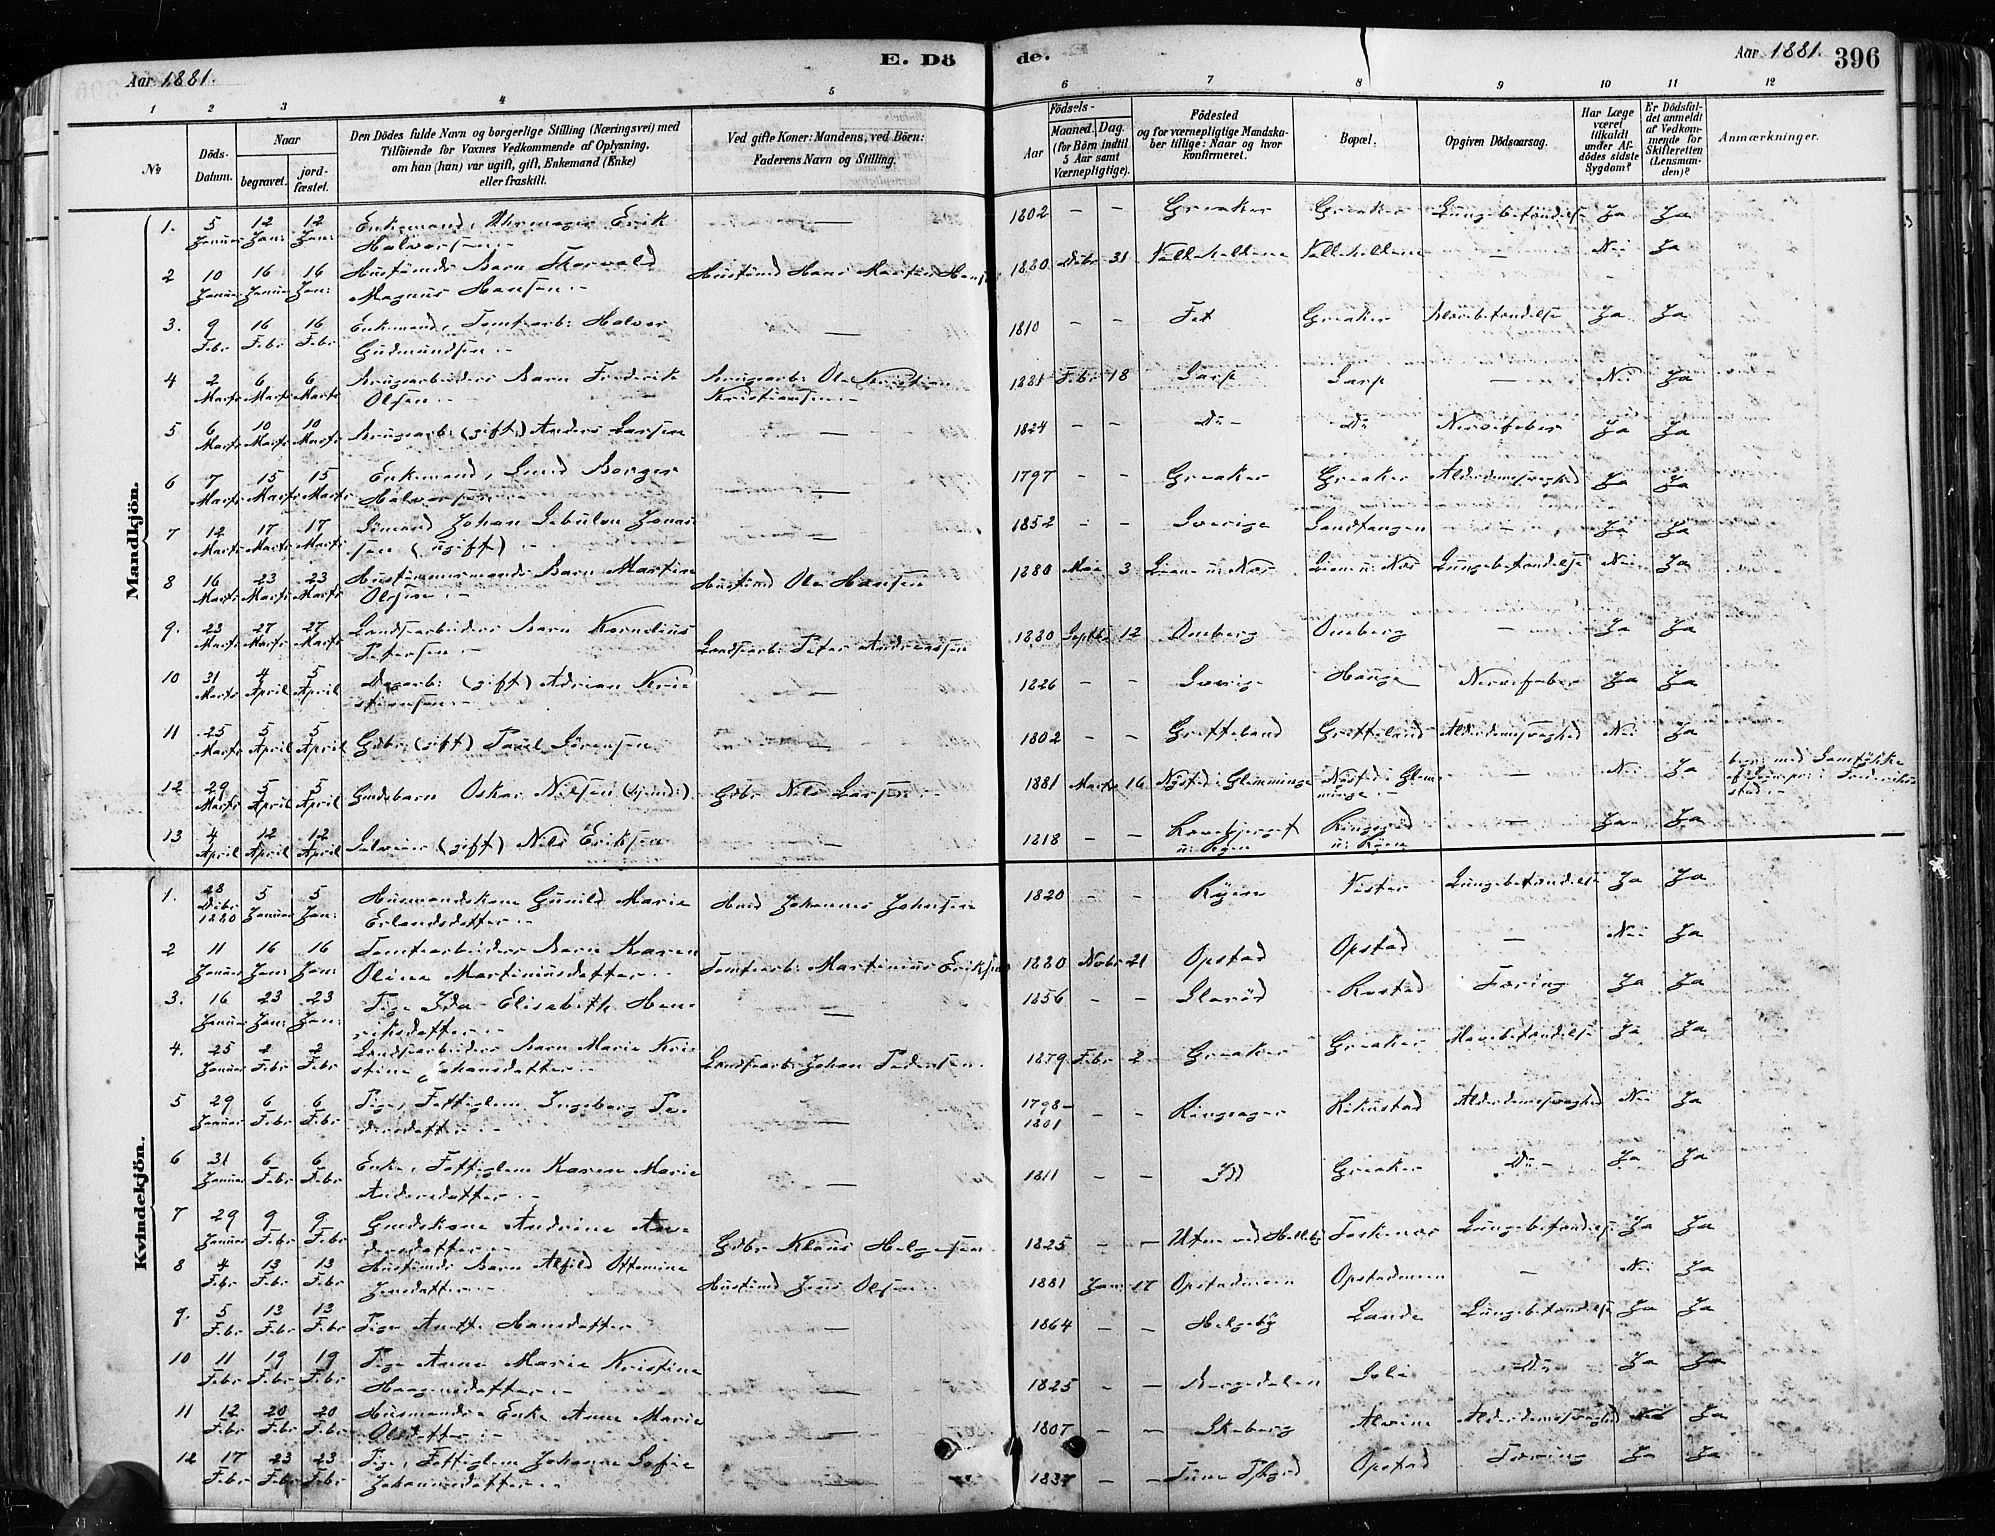 Aar 1881.
E. Dö
de.
Aar 1881.
396
1 2 3 4 5 6 7 8 9 10 11 12
No
Döds-Datum.
Naar
begravet.
jord-fæstet.
Den Dödes fulde Navn og borgerlige Stilling (Næringsvei) med
Tilföiende for Voxnes Vedkommende af Oplysning,
om han (hun) var ugift, gift, Enkemand (Enke)
eller fraskilt.
Ved gifte Koner: Mandens, ved Börn:
Faderens Navn og Stilling.
Födsels-
Aar
Maaned. Dag.
(for Börn indtil
5 Aar samt
Værnepligtige).
Födested
og for værnepligtige Mandska-
ber tillige: Naar og hvor
konfirmeret.
Bopæl.
Opgiven Dödsaarsag.
Har Læge
været
tilkaldt
under Af-
dödes sidste
Sygdom?
Er Dödsfal-
det anmeldt
af Vedkom-
mende for
Skifteretten
(Lensman-
den)?
Anmærkninger.
Mandkjön.
1. 5 Januar 12 Jan: 12 Jan: Enkemand, Uhrmager Erik Halvorsen — 1802 — — Greaker Greaker Lungebetændelse Ja Ja
2 10 Januar 16 Januar 16 Jan: Hustømds Barn Thorvald Magnus Hansen Hustømd Hans Martin 1880 Debr 31 — Nei Ja
3. 9 Febr 16 Febr 16 Febr Enkemand, Tomtearb: Halvor Gudmundsen — 1810 — — Fet Greaker Ja Ja
4 2 Marts 6 Marts 6 Marts Brugsarbeiders Barn Frederik Olsen Brugsarb: Ole Kristian Kristiansen 1881 Febr 18 Sarp Sarp — Nei Ja
5 6 Marts 10 Marts 10 Marts Brugsarb: (gift) Anders Larsen — 1824 — — Do Do Nervefeber Ja Ja
6 7 Marts 15 Marts 15 Marts Enkemand, Borger Halvorsen — 1797 — — Greaker Greaker Alderdomssvaghed Ja Ja
7 12 Marts 17 Marts 17 Marts Sömand Johan Sebulon Jonassen (ugift) — 1852 — — Sverige Sandtangen — Ja Ja
8 16 Marts 23 Marts 23 Marts Hustømmermands Barn Martin Olsen Hustømd Ole Hansen 1880 Mai 3 Lien u: Næs Lien u: Næs Lungebetændelse Nei Ja
9. 23 Marts 27 Marts 27 Marts Landsarbeiders Barn Kornelius Petersen Landsarb: Peter Andreassen 1880 Septbr 12 Omberg Omberg — Ja Ja
10 31 Marts 4 April 5 April Dagarb: (gift) Adrian Kristiansen — 1826 — — Sverige Hauge Nervefeber Ja Ja
11 25 Marts 5 April 5 April Gdbr: (gift) Paul Sörensen — 1802 — — Grefteland Grefteland Alderdomssvaghed Nei Ja
12 29 Marts 5 April 5 April Gaardbarn Oskar Nilsen Gdbr Nils Larsen 1881 Marts 16 Nystad i Glemminge Nystad i Glemminge — Nei Ja
13 4 April 12 April 12 April Selveier (gift) Nils Eriksen — 1818 — — u: Ryen u: Ryen — Ja Ja
Kvindekjön.
1. 28 Debr 1880 5 Januar 5 Jan: Husmandskone Gunild Marie Erlandsdatter Husmd Johannes Johnsen 1820 — — Ryen Vister Lungebetændelse Ja Ja
2 11 Januar 16 Jan: 16 Jan: Tomtearbeiders Barn Karen Oline Martiniusdatter Tomtearb: Martinius Eriksen 1880 Novbr 21 Opstad Opstad — Nei Ja
3. 16 Januar 23 Jan: 23 Jan: Pige Ida Elisabeth Henriksdatter — 1856 — — Rostad Tæring Ja Ja
4. 25 Januar 2 Febr 2 Febr Landsarbeiders Barn Marie Kristine Johansdatter Landsarb: Johan Pedersen 1879 Febr 2 Greaker Greaker Ja Ja
5 29 Januar 6 Febr 6 Febr Pige, Fattiglem Ingeborg Pedersdatter — 1798–1801 — — Ringsager Alderdomssvaghed Nei Ja
6 31 Januar 6 Febr 6 Febr Enke, Fattiglem Karen Marie Andersdatter — 1811 — — Idd Greaker Do Ja Ja
7 29 Januar 9 Febr 9 Febr Gaardskone Andrine Andersdatter Gdbr Klaus Helgesen 1825 — — Lungebetændelse Ja Ja
8 4 Febr 13 Febr 13 Febr Hustømds Barn Alfild Ottomine Jensdatter Hustømd Jens Olsen 1881 Jan: 17 Opstadmoen Opstadmoen — Nei Ja
9. 5 Febr 13 Febr 13 Febr Pige Anette Hansdatter — 1864 — — Helgeby Lande Lungebetændelse Ja Ja
10 11 Febr 19 Febr 19 Febr Pige Anne Marie Kristine Haagensdatter — 1825 — — Borgedalen Solie Do Ja Ja
11 12 Febr 20 Febr 20 Febr Husmands Enke Anne Marie Olsdatter — 1807 — — Skaberg Alvine Alderdomssvaghed Nei Ja
12 17 Febr 23 Febr 23 Febr Pige, Fattiglem Johanne Sofie Johannesdatter — 1837 — — Tune Opstad Tæring Ja Ja